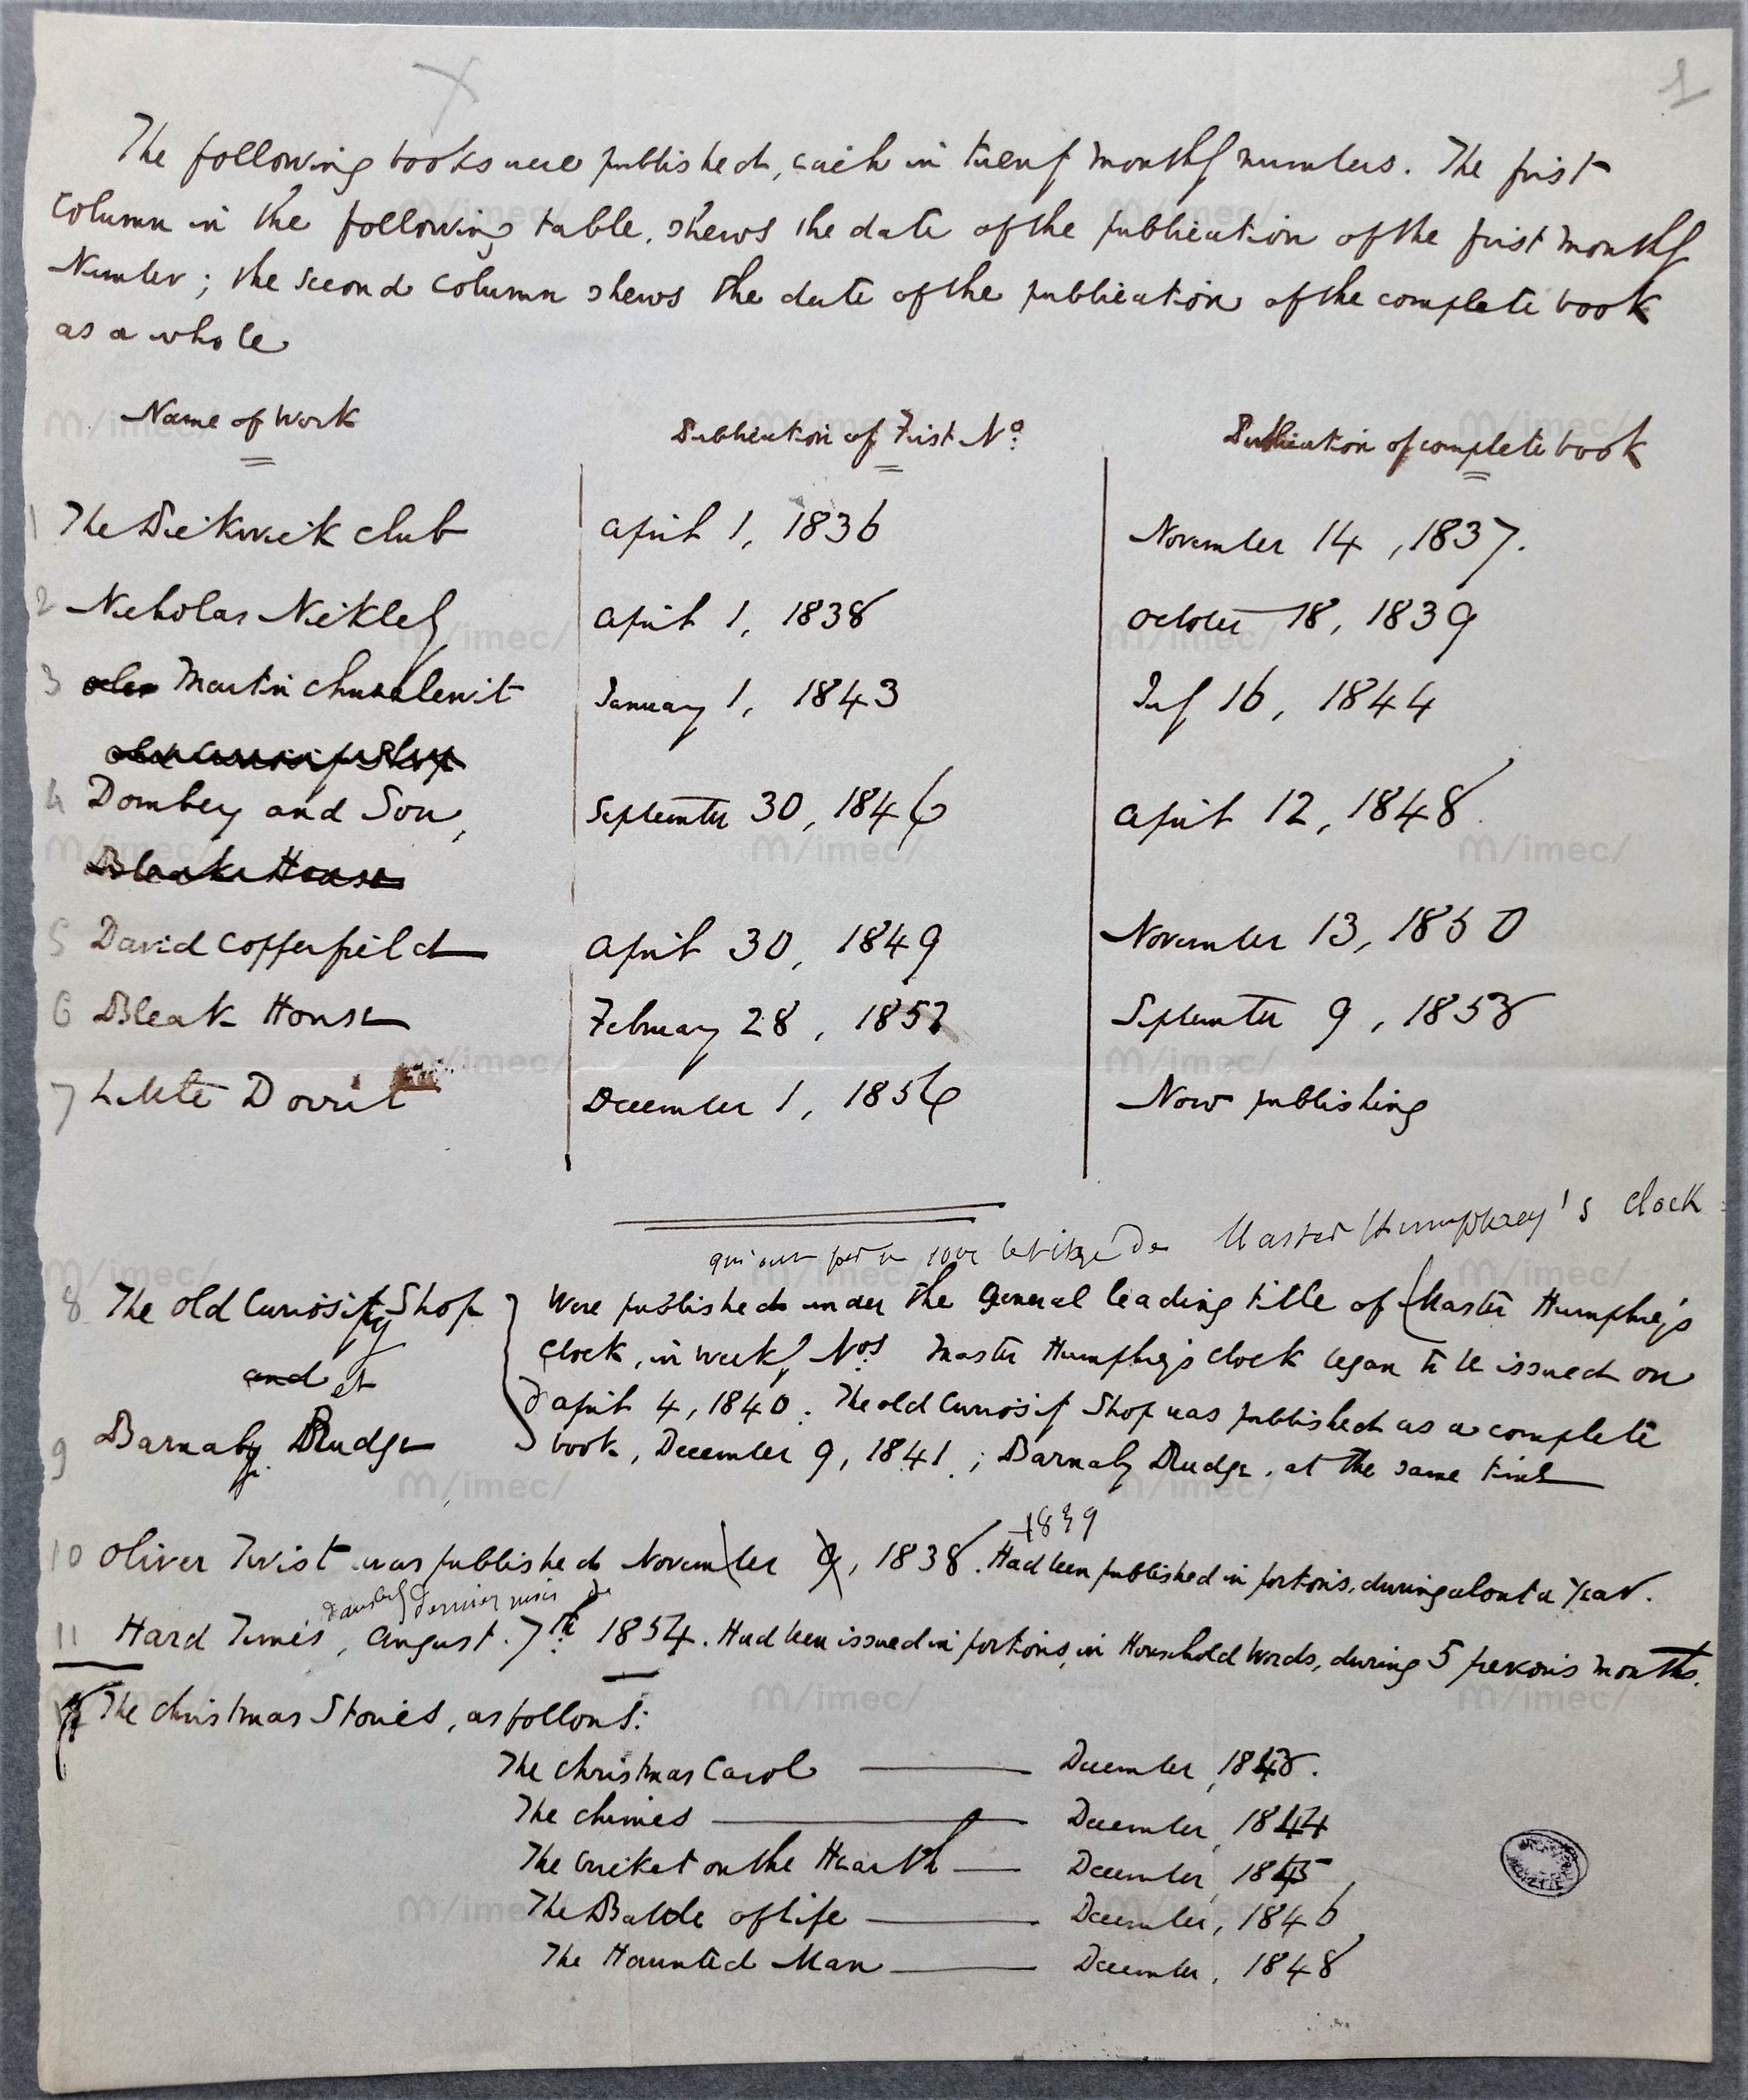 1
The following books were published, each in twenty monthly numbers. The first
column in the following table, shews the date of the publication of the first monthly
Number; the second column shews the date of the publication of the complete book
as a whole
Name of Work Publication of First No. Publication of complete book
1 The Pickwick Club April 1, 1836 November 14, 1837.
2 Nicholas Nickleby April 1, 1838 October 18, 1839
3 Martin Chuzzlewit January 1, 1843 July 16, 1844
Old Curiosity Shop
4 Dombey and Son, September 30, 1846 April 12, 1848.
Bleak House
5 David Copperfield April 30, 1849 November 13, 1850
6 Bleak House February 28, 1852 September 9, 1853
7 Little Dorrit December 1, 1856 Now publishing
qui ont sous le titre de Master Humphrey's Clock
8 The Old Curiosity Shop Were published under the general leading title of Master Humphrey's
Clock, in weekly Nos. Master Humphrey's Clock began to be issued on
and et
April 4, 1840. The Old Curiosity Shop was published as a complete
9 Barnaby Rudge book, December 9, 1841; Barnaby Rudge, at the same time
1839
10 Oliver Twist was published November 9, 1838. Had been published in portions, during about a year.
dernier mois de
11 Hard Times, August 7th 1854. Had been issued in portions, in Household Words, during 5 previous months.
The Christmas Stories, as follows:
The Christmas Carol December, 1843.
The Chimes December, 1844
The Cricket on the Hearth December, 1845
The Battle of Life December, 1846
The Haunted Man December, 1848
m/imec/